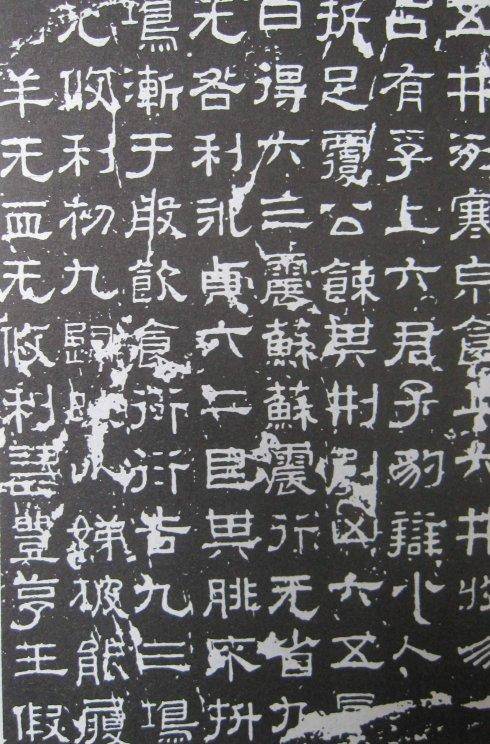 五井洌寒泉食上六井收勿
吉有孚上六君子豹辯小人
折足覆公餗其刑剭凶六五鼎
曰得六三震蘇蘇震行无省九
无咎利永貞六二艮其腓不抍
鴻漸于般飲食衍衍吉九三鴻
无攸利初九歸妹以娣跛能履
羊无血无攸利豐亨王假